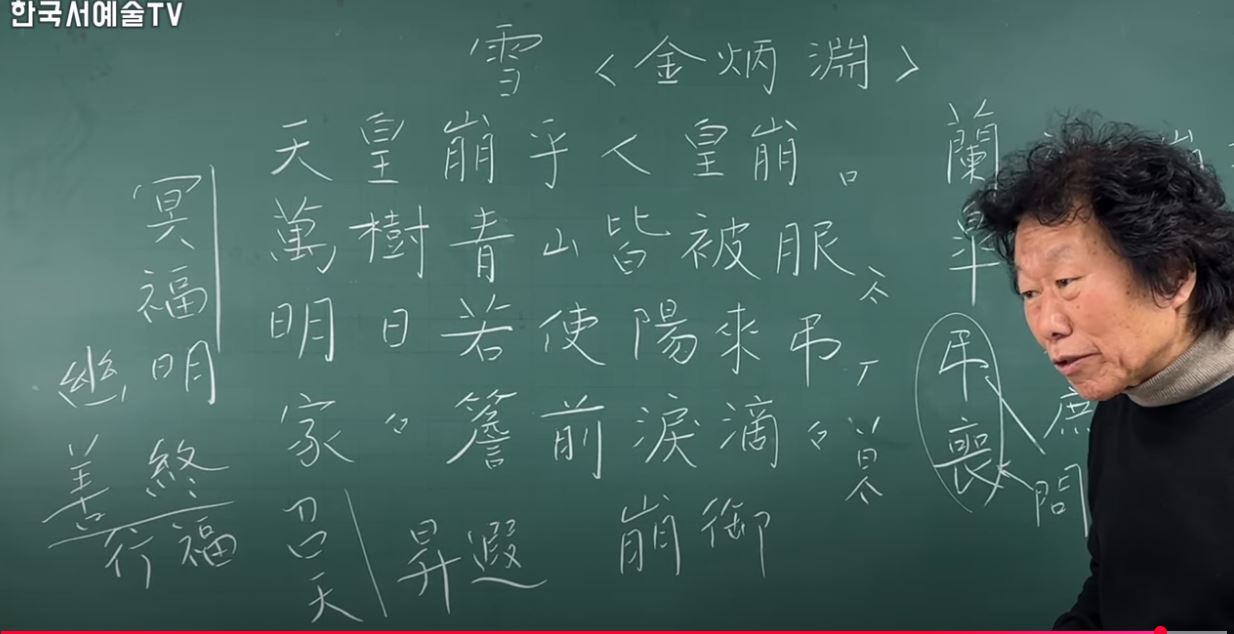 한국서예술TV
雪 <金炳淵>
天皇崩乎人皇崩。
萬樹青山皆被服
明日若使陽來吊
家。簷前淚滴。
冥福
幽明
善終
行福
召天
昇遐
崩御
蘭
吊喪
問